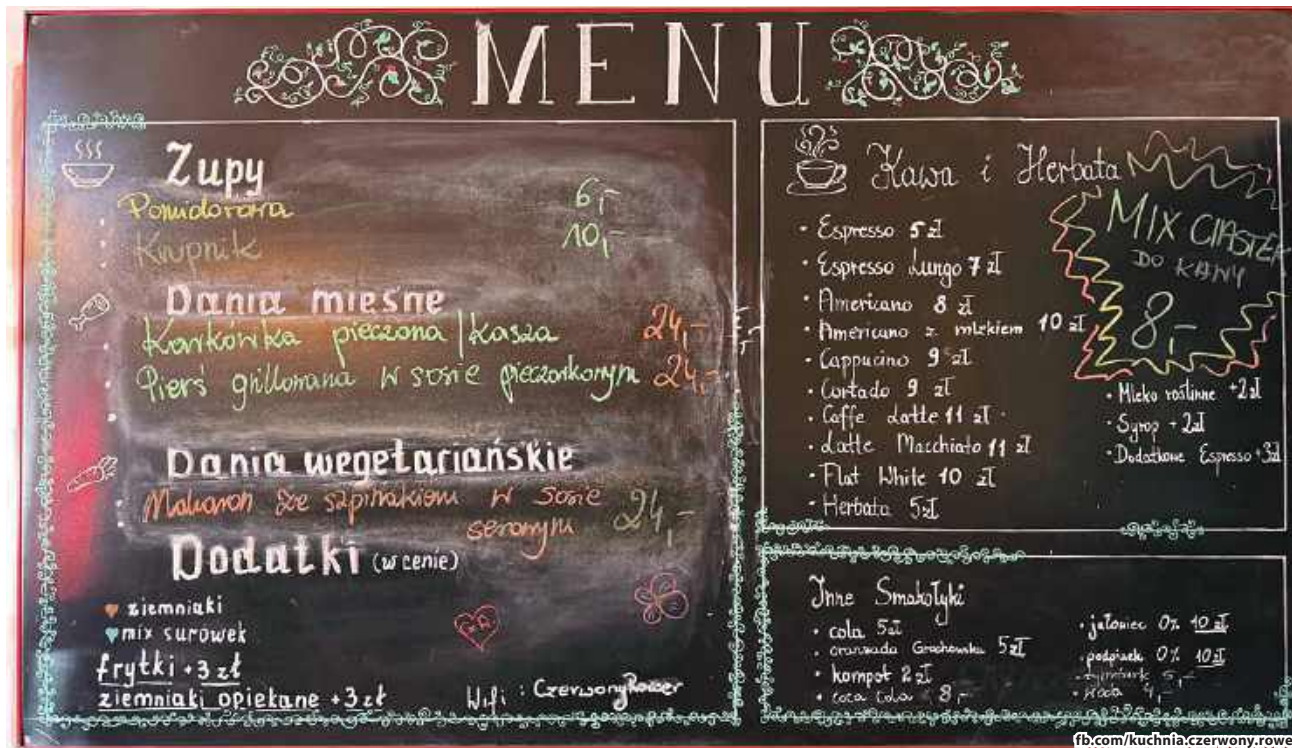 MENU
Zupy
Pomidorowa 6,-
Krupnik 10,-
Dania mięsne
Karkówka pieczona | kasza 24,-
Pierś grillowana w sosie pieczarkowym 24,-
Dania wegetariańskie
Makaron ze szpinakiem w sosie
serowym 24,-
Dodatki (w cenie)
ziemniaki
mix surówek
frytki +3 zł
ziemniaki opiekane +3 zł
Wifi : CzerwonyRower
Kawa i Herbata
• Espresso 5 zł
• Espresso Lungo 7 zł
• Americano 8 zł
• Americano z mlekiem 10 zł
• Cappucino 9 zł
• Cortado 9 zł
• Caffe Latte 11 zł
• Latte Macchiato 11 zł
• Flat White 10 zł
• Herbata 5 zł
MIX CIASTEK
DO KAWY
8,-
• Mleko roślinne +2 zł
• Syrop +2 zł
• Dodatkowe Espresso +3 zł
Inne Smakołyki
• cola 5 zł
• oranżada Grochowska 5 zł
• kompot 2 zł
• coca cola 8,-
• jałowiec 0% 10 zł
• podpiwek 0% 10 zł
• tymbark 5,-
• woda 4,-
fb.com/kuchnia.czerwony.rowe